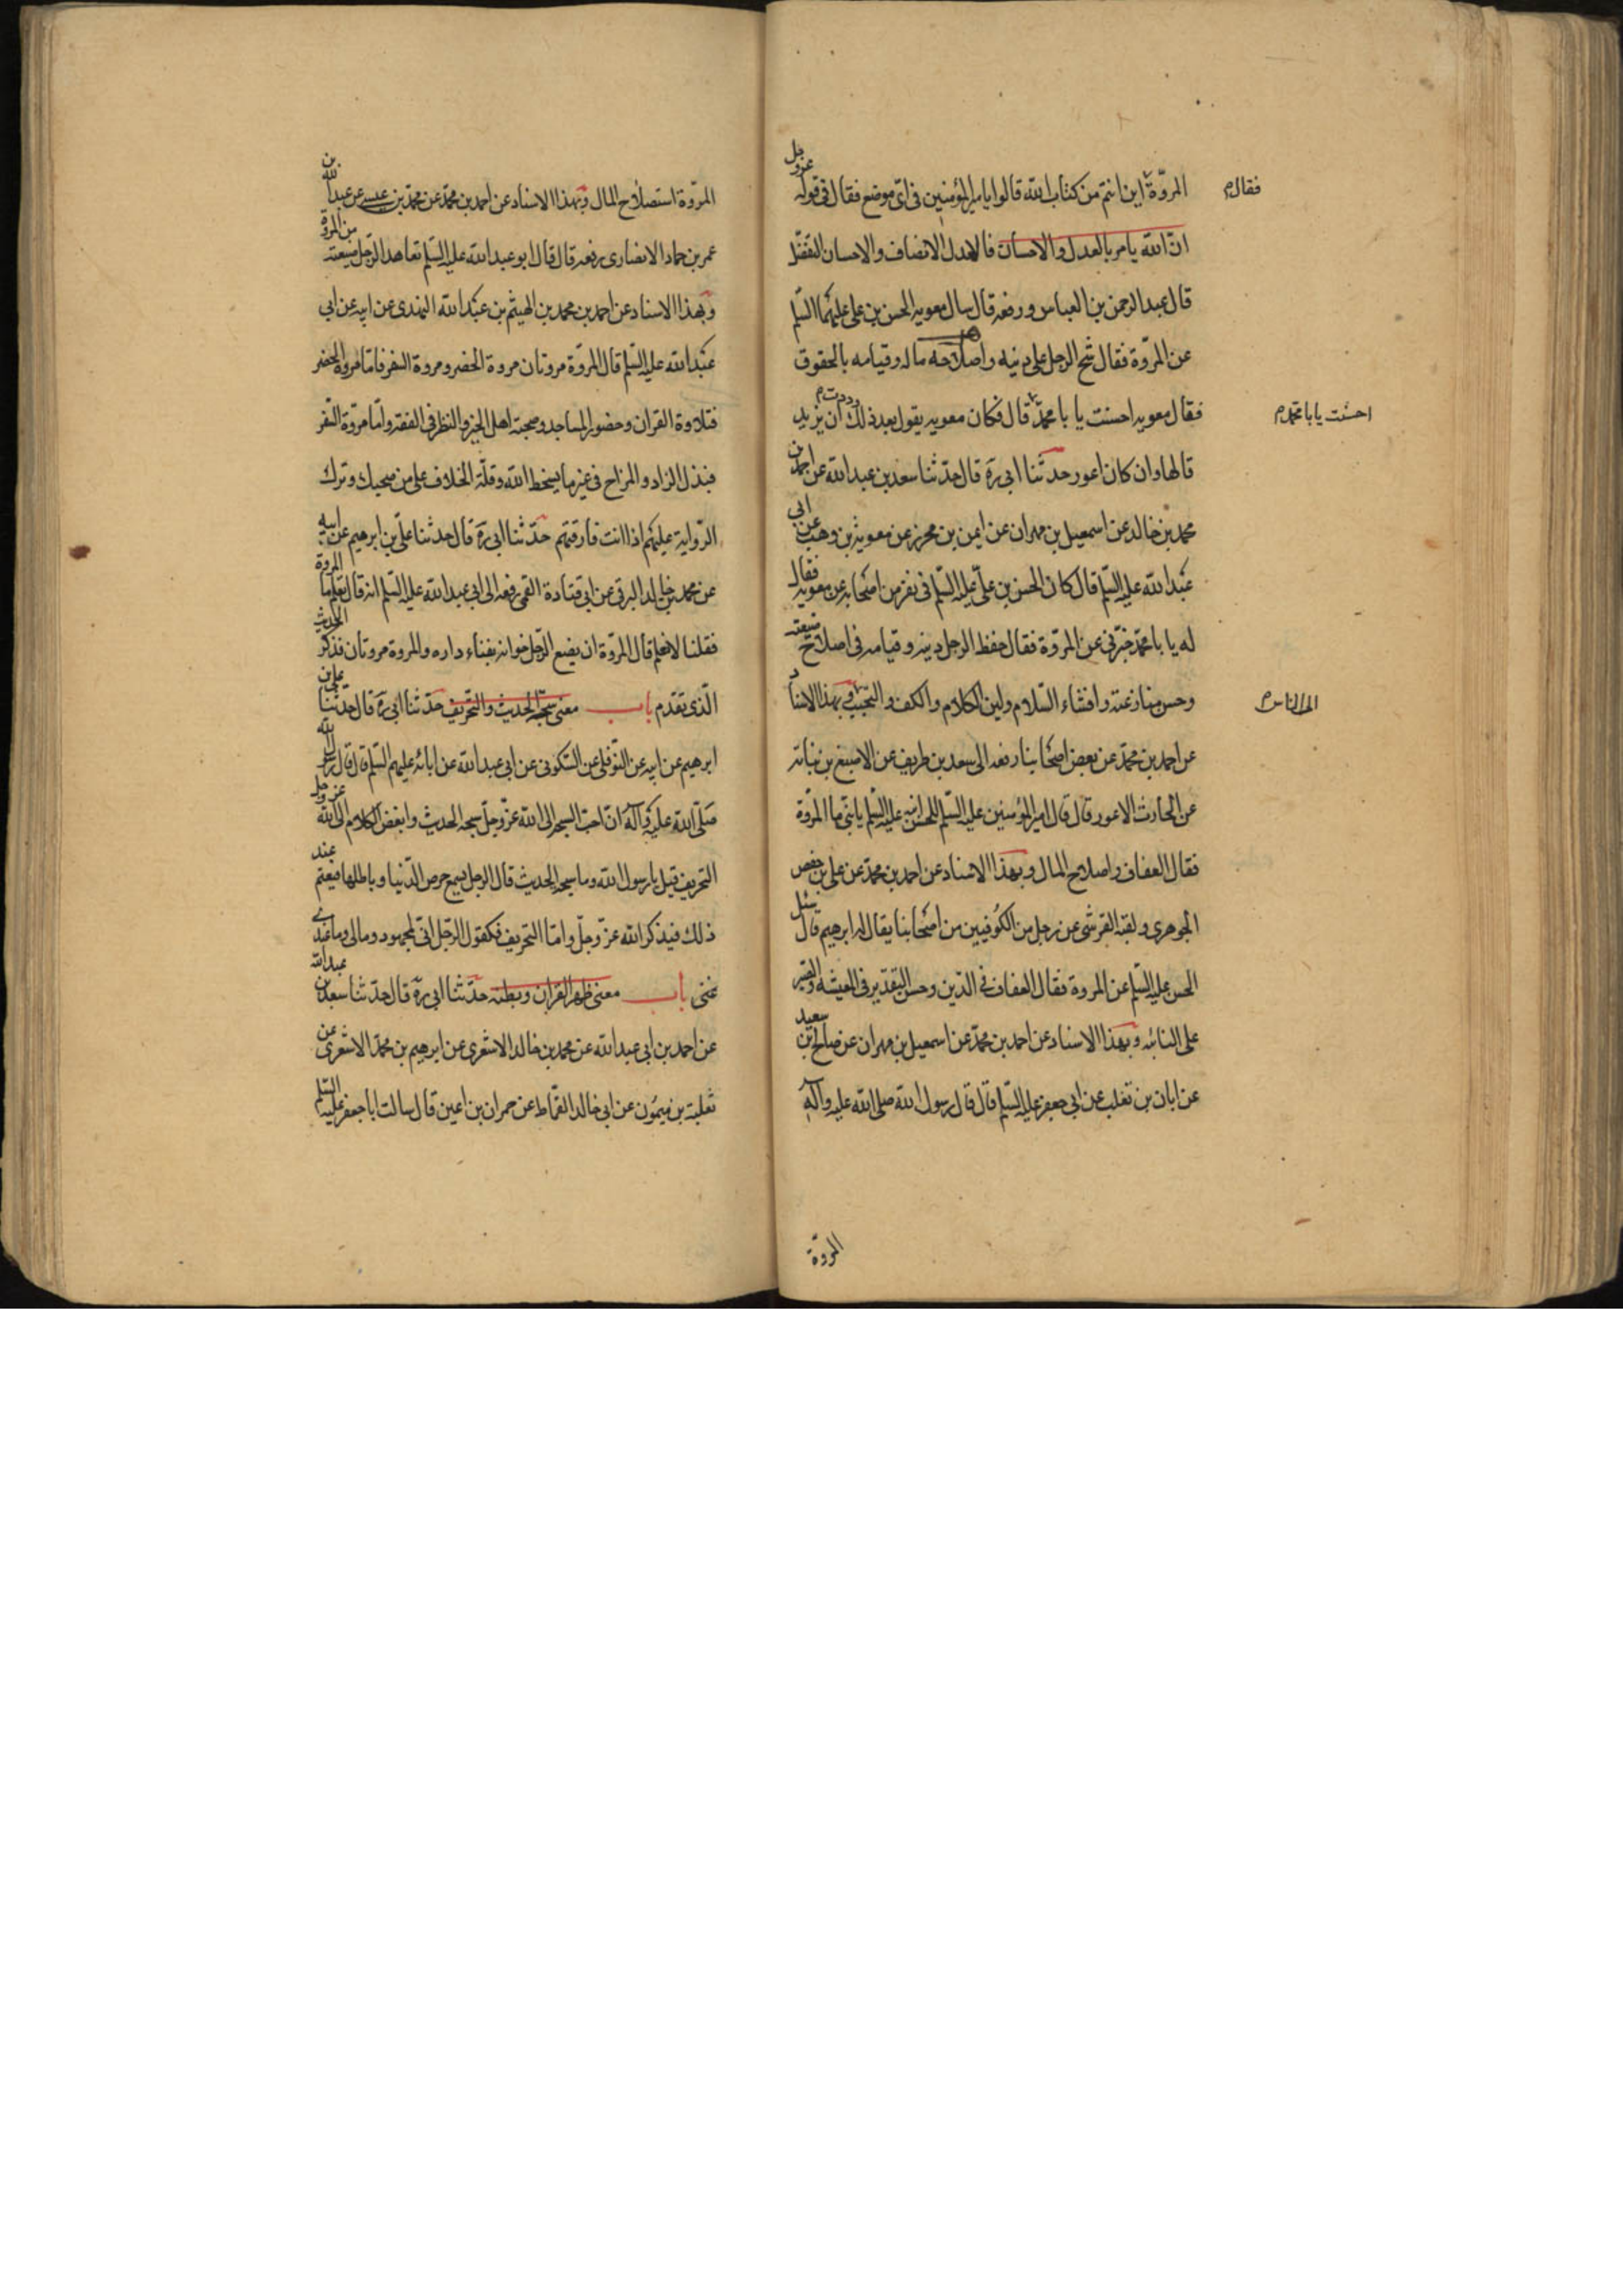 المروّة اين انتم من كتاب الله قالوا يا امير المؤمنين فى اىّ موضع فقال فى قوله عزوجل
فقال م
انّ الله يامر بالعدل والاحسان فالعدل الانصاف والاحسان التفضّل
قال عبد الرحمن بن العباس ورفعه قال سال معويه الحسن بن على عليهما السّلم
عن المروّة فقال شحّ الرجل على دينه واصلاحه ماله وقيامه بالحقوق
فقال معويه احسنت يا با محمّد قال فكان معويه يقول بعد ذلك وددت ان يزيد
احسنت يا با محمد م
قالها وان كان اعور حدّثنا ابى ره قال حدّثنا سعد بن عبد الله عن احمد بن
محمد بن خالد عن اسمعيل بن مهران عن ايمن بن محرز عن معوية بن وهب عن ابى
عبد الله عليه السّلم قال كان الحسن بن علىّ عليه السّلم فى نفر من اصحابه عن معويه فقال
له يا با محمّد خبّرنى عن المروّة فقال حفظ الرجل دينه وقيامه فى اصلاح ضيعته
وحسن منازعته وافشاء السّلام ولين الكلام والكف والتحبّب وبهذا الاسناد
الى الناس م
عن احمد بن محمّد عن بعض اصحابنا رفعه الى سعد بن طريف عن الاصبغ بن نباته
عن الحارث الاعور قال قال امير المؤمنين عليه السّلم للحسن ابنه عليه السّلم يا بنىّ ما المروّة
فقال العفاف واصلاح المال وبهذا الاسناد عن احمد بن محمّد عن على بن حفص
الجوهرى ولقبه القرشى عن رجل من الكوفيين من اصحابنا يقال له ابرهيم قال سئل
الحسن عليه السّلم عن المروة فقال العفاف فى الدّين وحسن التقدير فى المعيشه والصبر
على النائبه وبهذا الاسناد عن احمد بن محمّد عن اسمعيل بن مهران عن صالح بن سعيد
عن ابان بن تغلب عن ابى جعفر عليه السّلم قال قال رسول الله صلى الله عليه وآله
المروّة
المروّة استصلاح المال وبهذا الاسناد عن احمد بن محمّد عن محمّد بن عيسى عن عبد الله بن
عمر بن حماد الانصارى رفعه قال قال ابو عبد الله عليه السّلم تعاهد الرّجل ضيعته من المروة
وبهذا الاسناد عن احمد بن محمد بن الهيثم بن عبد الله النهدى عن ابيه عن ابى
عبد الله عليه السّلم قال المروّة مروتان مروة الحضر ومروة السفر فامّا مروة الحضر
فتلاوة القران وحضور المساجد وصحبة اهل الخير والنظر فى الفقه وامّا مروّة السّفر
فبذل الزاد والمزاح فى غير ما يسخط الله وقلّة الخلاف على من صحبك وترك
الرّواية عليهم اذا انت فارقتهم حدّثنا ابى ره قال حدثنا علىّ بن ابرهيم عن ابيه
عن محمد بن خالد البرقى عن ابى قتادة القمى رفعه الى ابى عبد الله عليه السّلم انه قال ما المروة
فقلنا لا نعلم قال المروّة ان يضع الرّجل خوانه بفناء داره والمروة مروتان فذكر الحديث
الّذى تقدّم باب معنى سبحة الحديث والتحريف حدّثنا ابى ره قال حدّثنا على بن
ابرهيم عن ابيه عن النّوفلى عن السّكونى عن ابى عبد الله عن ابائه عليهم السّلم قال قال رسول الله
صلّى الله عليه وآله انّ احبّ السبحة الى الله عزّ وجلّ سبحة الحديث وابغض الكلام الى الله عز وجل
التحريف قيل يا رسول الله وما سبحة الحديث قال الرجل يسمع حرص الدّنيا وباطلها فيغتم عند
ذلك فيذكر الله عزّ وجلّ وامّا التحريف فكقول الرّجل انّى لمجهود ومالى وما عندى
غنى باب معنى ظهر القران وبطنه حدّثنا ابى ره قال حدّثنا سعد بن عبد الله
عن احمد بن ابى عبد الله عن محمد بن خالد الاشعرى عن ابرهيم بن محمّد الاشعرى عن
ثعلبة بن ميمون عن ابى خالد القمّاط عن حمران بن اعين قال سالت ابا جعفر عليه السّلم